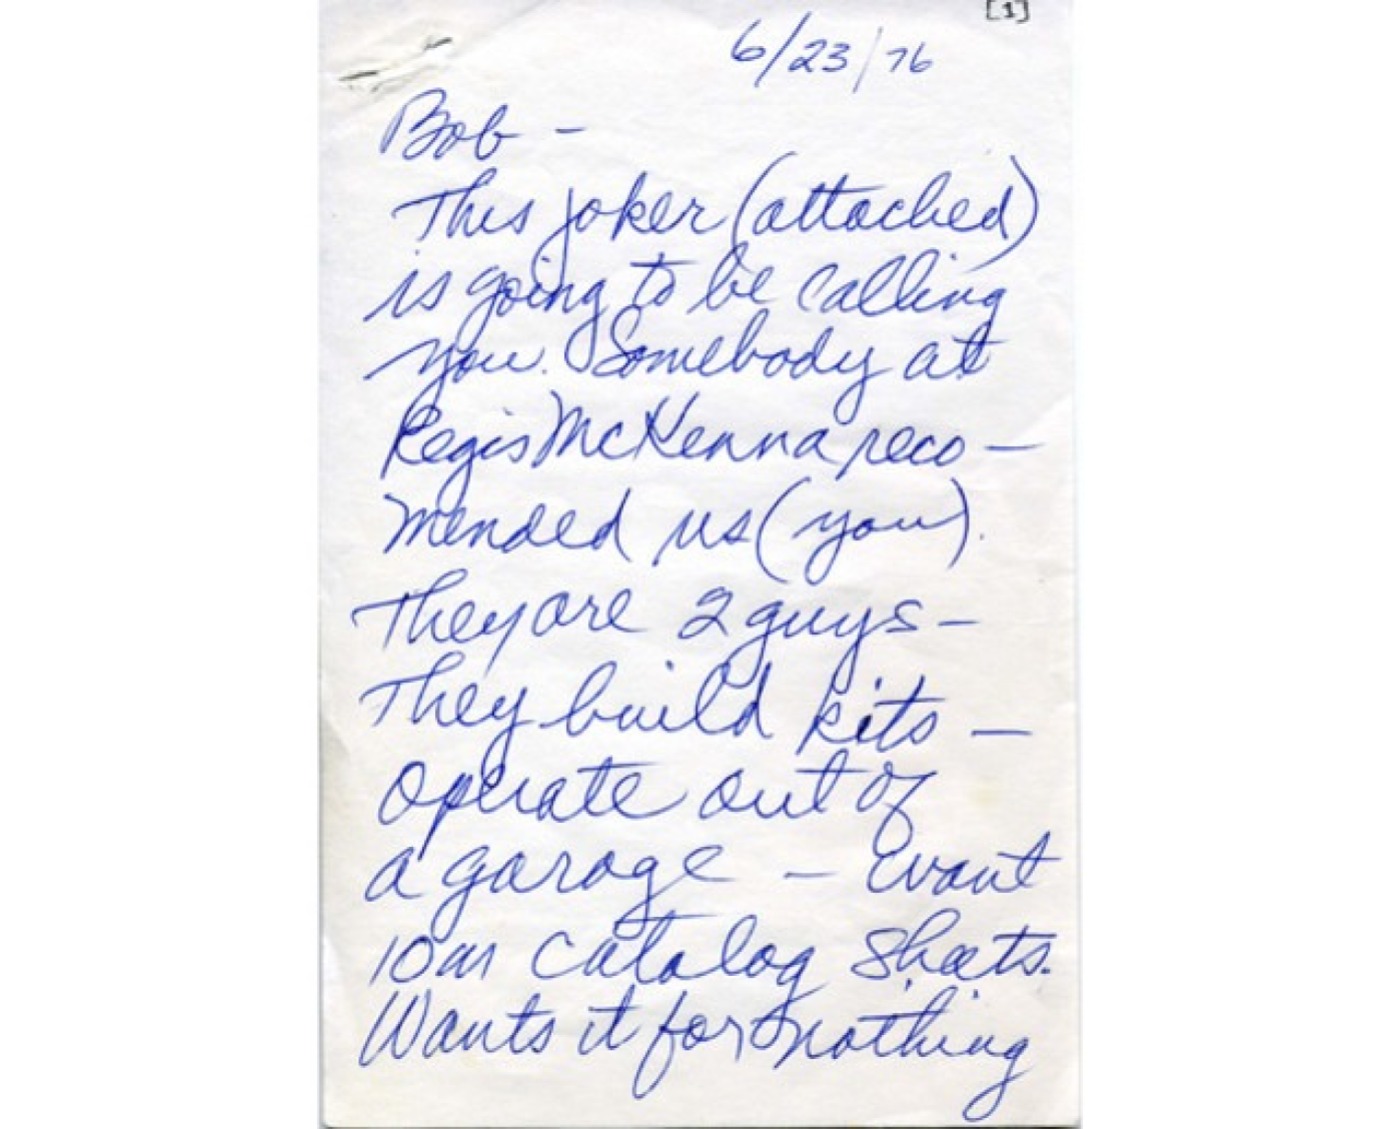 [1]
6/23/76
Bob -
This joker (attached)
is going to be calling
you. Somebody at
Regis McKenna reco-
mended us (you).
They are 2 guys -
They build kits -
operate out of
a garage - want
10M catalog sheets.
Wants it for nothing